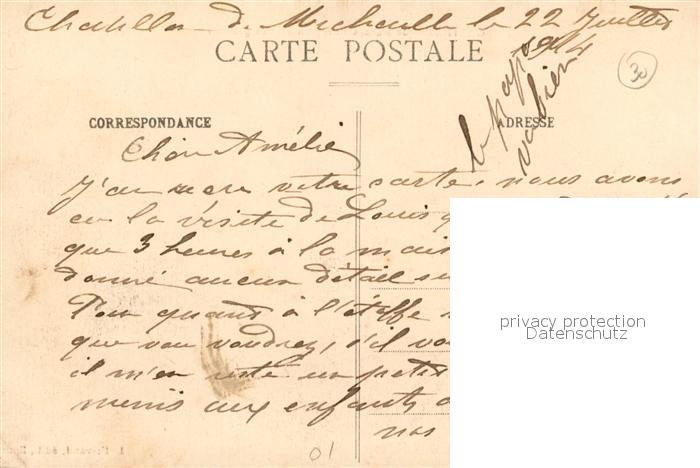 Chatillon de Michaille le 22 Juillet
1914
CARTE POSTALE
30
le papa
va bien
CORRESPONDANCE
ADRESSE
Chère Amélie
J'ai votre carte, nous avons
eu la visite de Louis
que 3 heures à la mais
donné aucun détail su
Pour quand à l'étoffe
que vou voudrez, s'il vo
il m'en reste un petit
mimis aux enfants
nos
01
privacy protection
Datenschutz